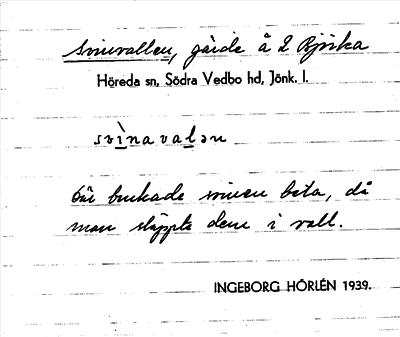 Svinvallen, gärde å 2 Björka
Höreda sn, Södra Vedbo hd, Jönk. l.
svìnavalən
där brukade svinen beta, då
man släppte dem i vall.
INGEBORG HÖRLÉN 1939.